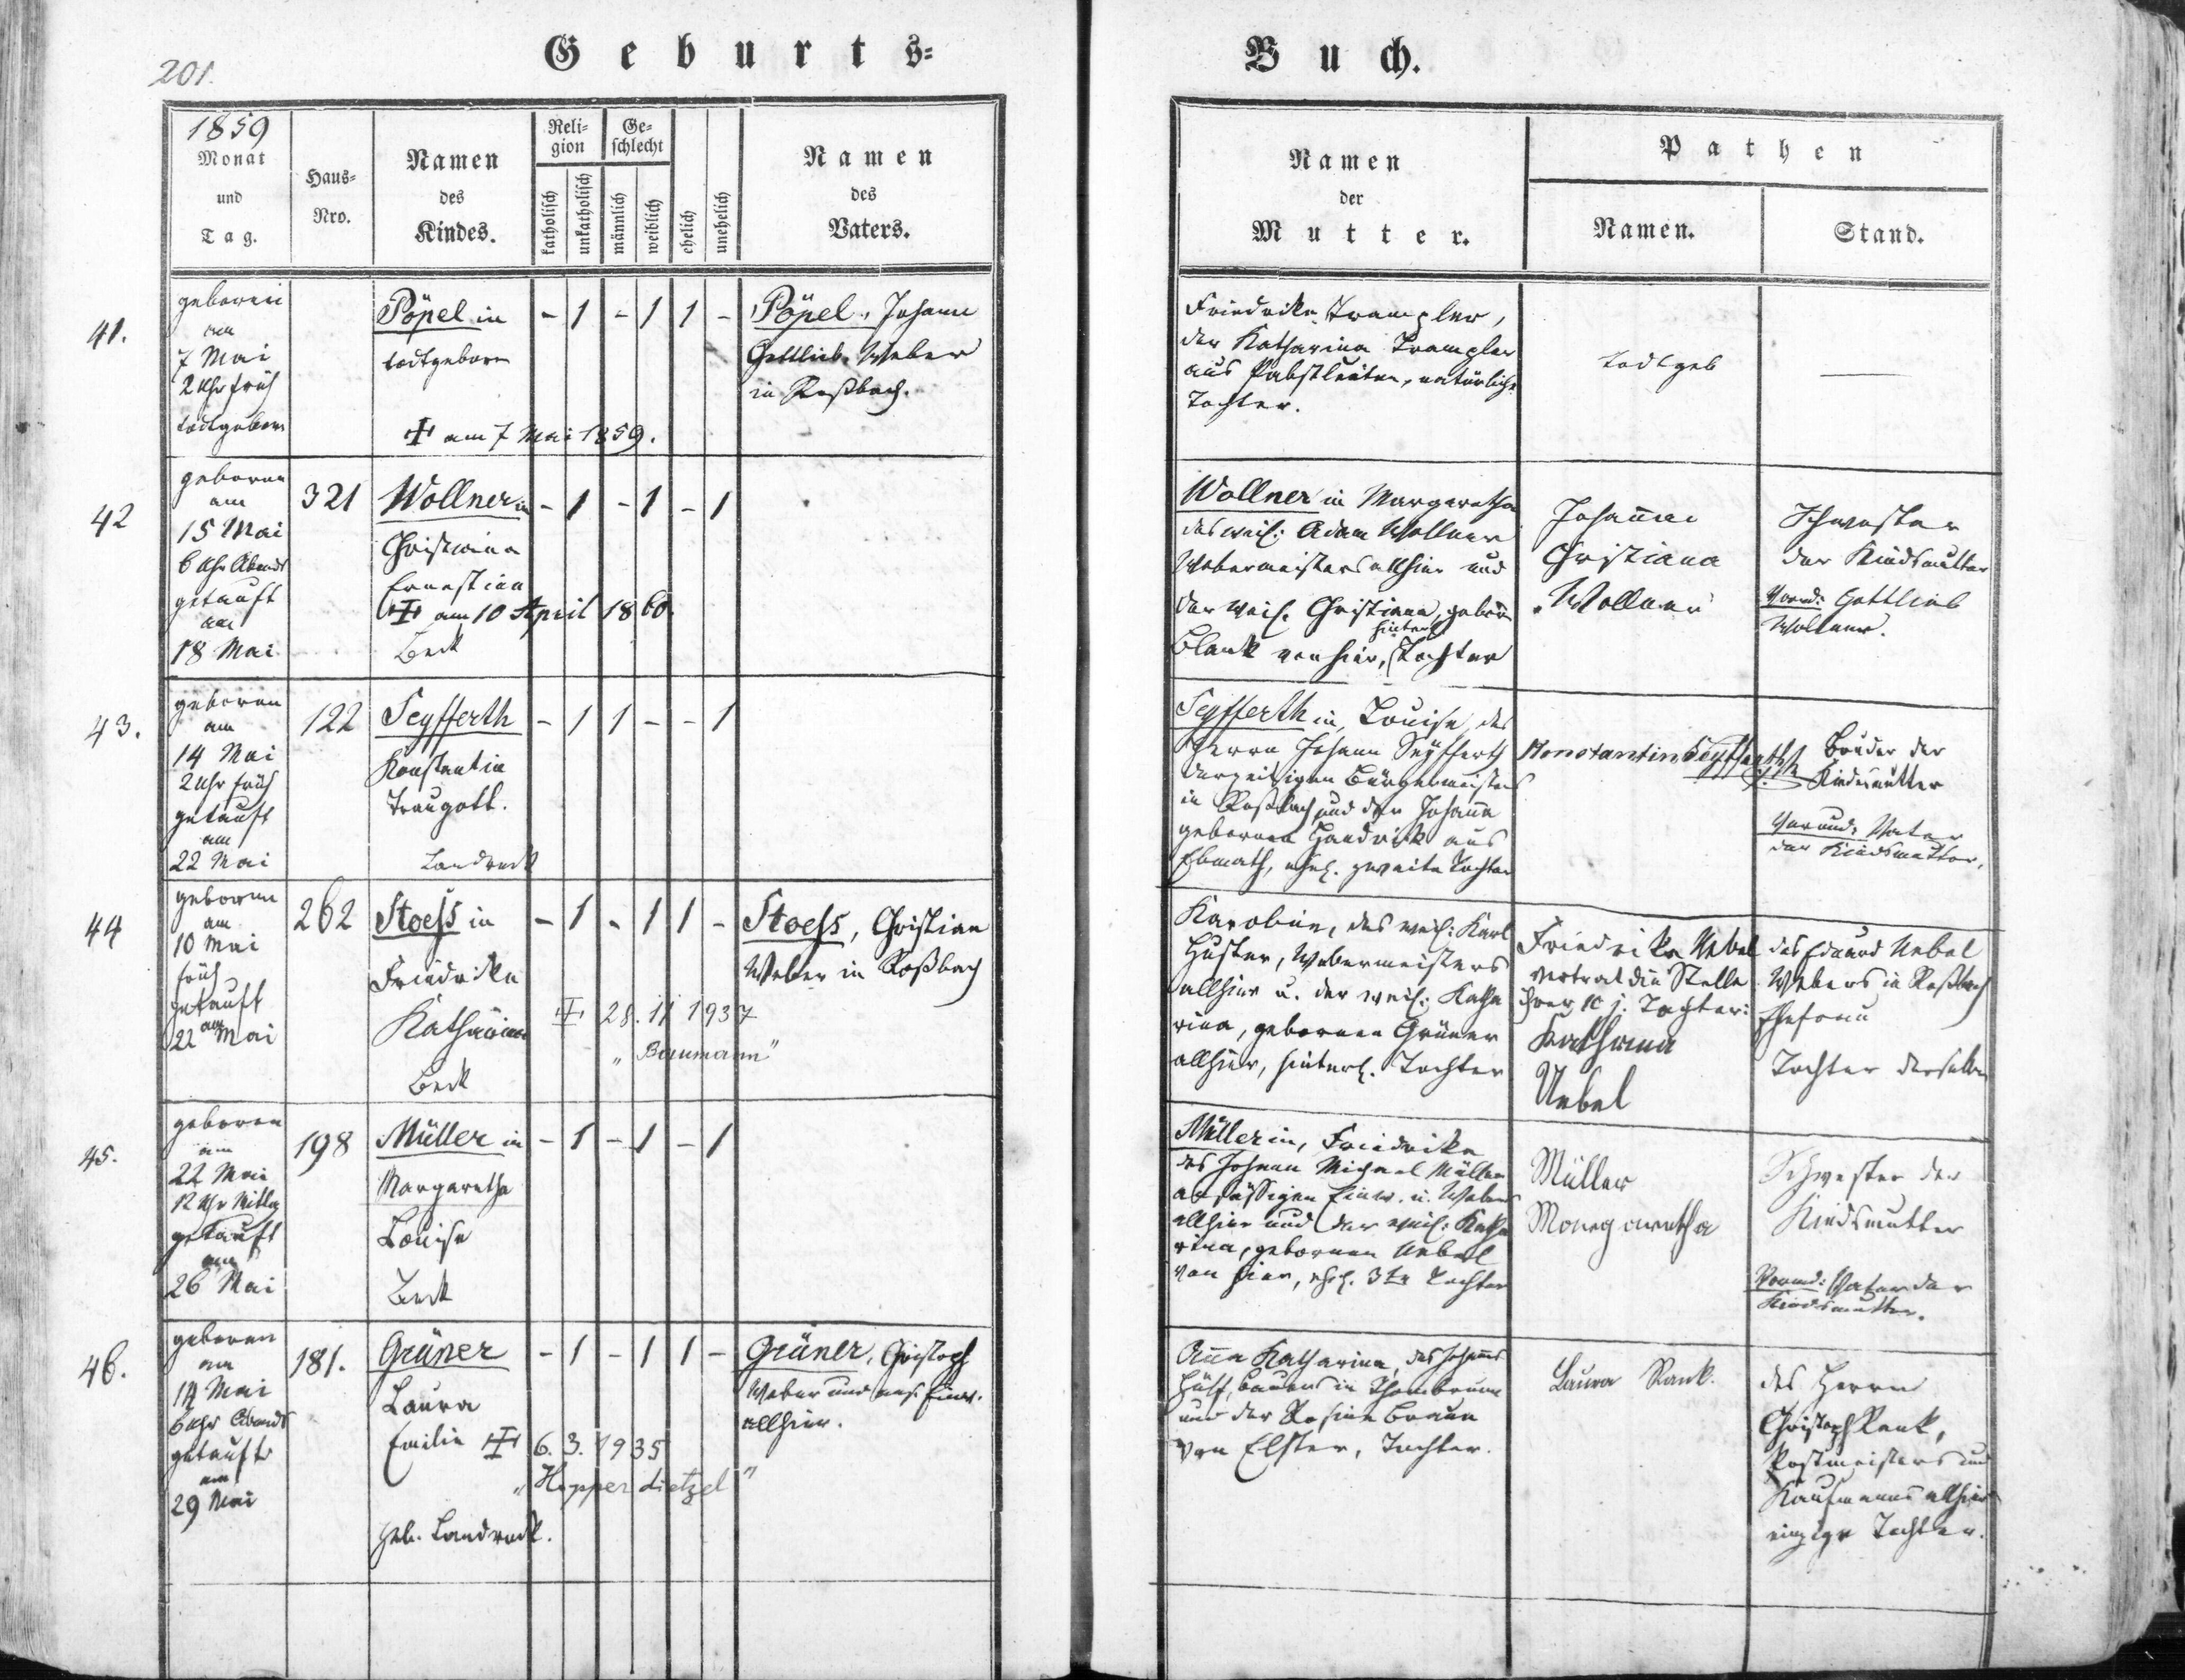 201.
Geburts-
Buch.
1859
Monat
und
Tag.
Haus-
Nro.
Namen
des
Kindes.
Reli-
gion
katholisch
unkatholisch
Ge-
schlecht
männlich
weiblich
ehelich
unehelich
Namen
des
Vaters.
Namen
der
Mutter.
Pathen
Namen.
Stand.
41.
geboren
am
7 Mai
2 Uhr früh
todtgeboren
Pöpel in
todtgeboren
✝ am 7 Mai 1859.
- 1 - 1 1 -
Pöpel, Johann
Gottlieb Weber
in Roßbach.
Friedrike Trampler,
der Katharina Trampler
aus Pabstleiten, natürliche
Tochter.
todtgeb
42
geboren
am
15 Mai
6 Uhr Abends
getauft
am
18 Mai
321
Wollner in
Christiana
Ernestine
✝ am 10 April 1860.
Beck
- 1 - 1 - 1
Wollner in Margaretha
des weil. Adam Wollner
Webermeisters allhier und
der weil. Christiana, geborn
Blank von hier, hinterl. Tochter
Johanna
Christiana
Wollner
Schwester
der Kindsmutter
Vormd: Gottlieb
Wollner.
43.
geboren
am
14 Mai
2 Uhr früh
getauft
am
22 Mai
122
Seyfferth
Konstantin
Traugott.
Landrock
- 1 1 - - 1
Seyfferth in, Louise, des
Herrn Johann Seyfferth
derzeitigen Bürgermeisters
in Roßbach und der Johanna
gebornen Handrik aus
Ebmath, ehel. zweite Tochter
Konstantin Seyfferth
Bruder der
Kindsmutter
Vormd: Vater
der Kindsmutter.
44
geboren
am
10 Mai
früh
getauft
am
22 Mai
262
Stoess in
Friedrika
Katharina
Beck
- 1 - 1 1 -
✝ 28. 11 1937
„Baumann"
Stoess, Christian
Weber in Roßbach
Karoline, des weil. Karl
Huster, Webermeisters
allhier u. der weil. Katha
rina, gebornen Grüner
allhier, hinterl. Tochter
Friedrika Uebel
vertrat die Stelle
ihrer 10 j. Tochter:
Katharina
Uebel
des Eduard Uebel
Webers in Roßbach
Ehefrau
Tochter derselben
45.
geboren
am
22 Mai
12 Uhr Mittag
getauft
am
26 Mai
198
Müller in
Margaretha
Louise
Beck
- 1 - 1 - 1
Müller in, Friedrike
des Johann Michael Müller
ansässigen Einw. u. Webers
allhier und der weil. Katha
rina, gebornen Uebel
von hier, ehel. 3te Tochter
Müller
Margaretha
Schwester der
Kindsmutter
Vormd: Vater der
Kindsmutter.
46.
geboren
am
14 Mai
6 Uhr Abends
getauft
am
29 Mai
181.
Grüner
Laura
Emilie ✝ 6. 3. 1935
„Hopperdietzel"
Heb. Landrock.
- 1 - 1 1 -
Grüner, Christoph
Weber und ans. Einw.
allhier.
Anna Katharina, des Johann
Hülf, Bauers in Thonbrunn
und der Rosina Braun
von Elster, Tochter.
Laura Rank.
des Herrn
Christoph Rank,
Postmeisters und
Kaufmanns allhier
einzige Tochter.